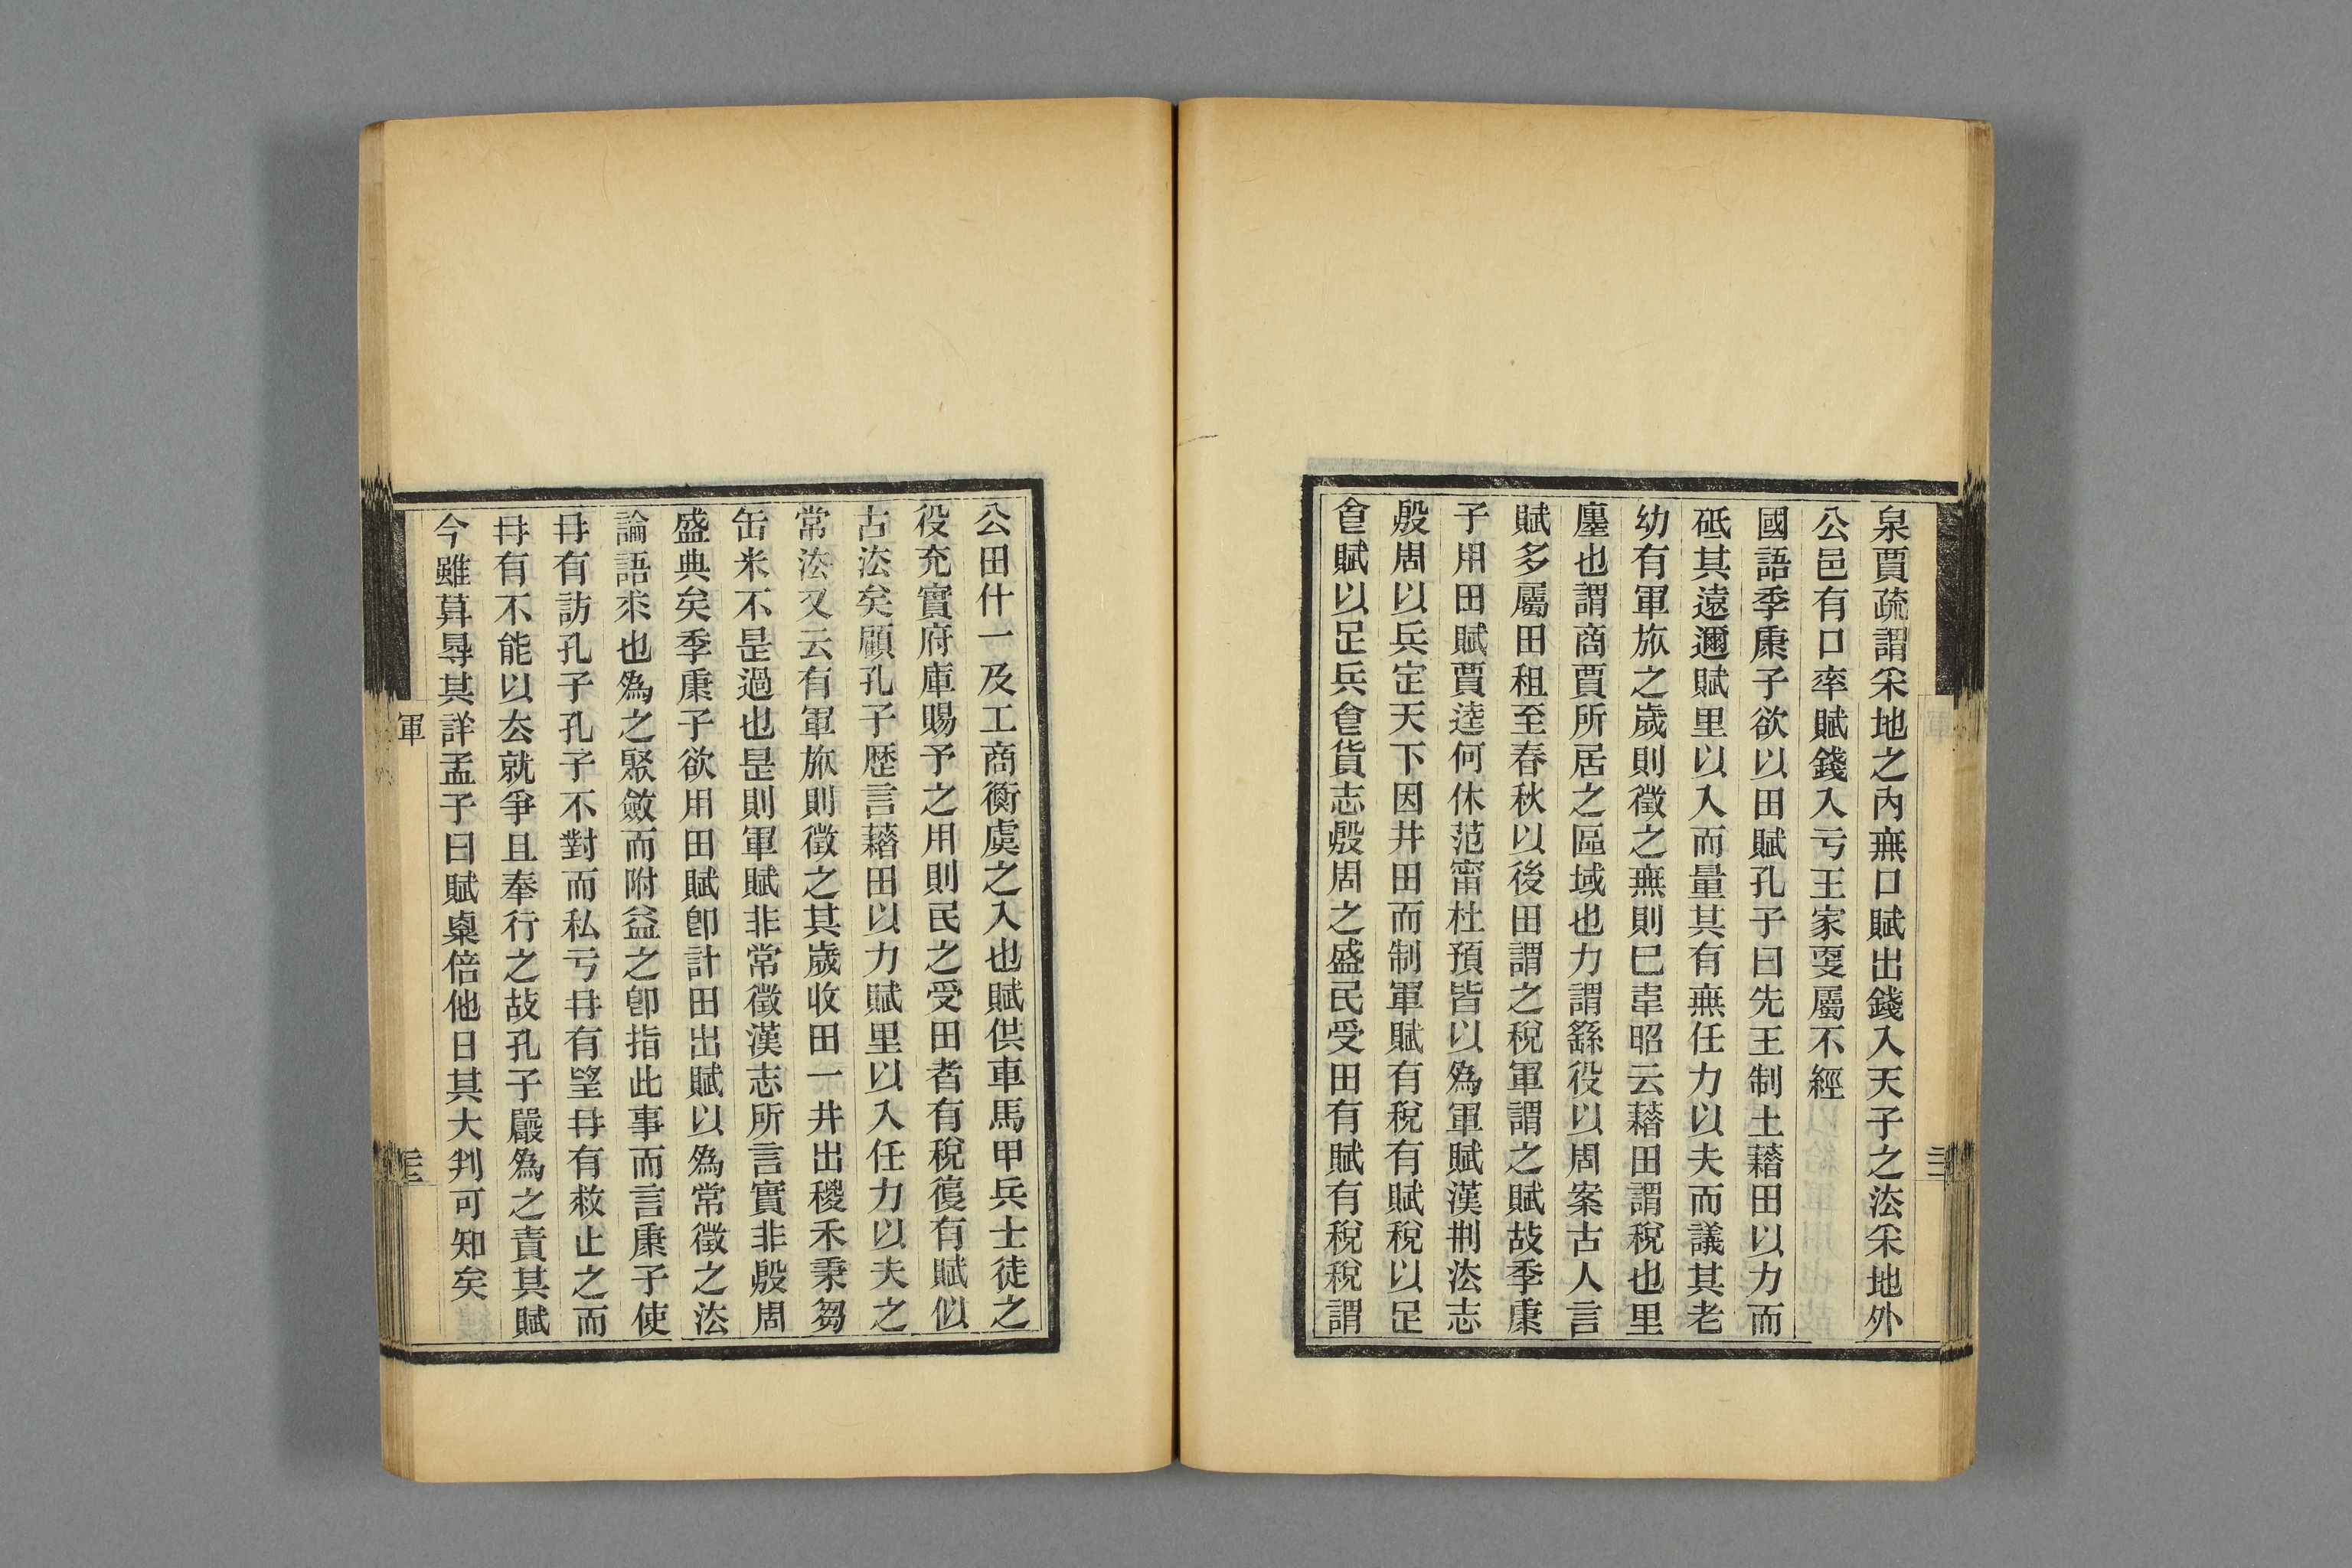 泉賈疏謂采地之內無口賦出錢入天子之法采地外
公邑有口率賦錢入亏王家叓屬不經
國語季康子欲以田賦孔子曰先王制土藉田以力而
砥其遠邇賦里以入而量其有無任力以夫而議其老
幼有軍旅之歲則徵之無則巳韋昭云藉田謂稅也里
廛也謂商賈所居之區域也力謂繇役以周案古人言
賦多屬田租至春秋以後田謂之稅軍謂之賦故季康
子用田賦賈逵何休范甯杜預皆以為軍賦漢荆法志
殷周以兵定天下因井田而制軍賦有稅有賦稅以足
食賦以足兵食貨志殷周之盛民受田有賦有稅稅謂
公田什一及工商衡虞之入也賦供車馬甲兵士徒之
役充實府庫賜予之用則民之受田者有稅復有賦似
古法矣顧孔子歷言藉田以力賦里以入任力以夫之
常法又云有軍旅則徵之其歲收田一井出稷禾秉芻
缶米不是過也是則軍賦非常徵漢志所言實非殷周
盛典矣季康子欲用田賦卽計田出賦以為常徵之法
論語求也為之聚斂而附益之卽指此事而言康子使
冄有訪孔子孔子不對而私亏冄有望冄有救止之而
冄有不能以去就爭且奉行之故孔子嚴為之責其賦
今雖算尋其詳孟子曰賦㮚倍他日其大判可知矣
軍